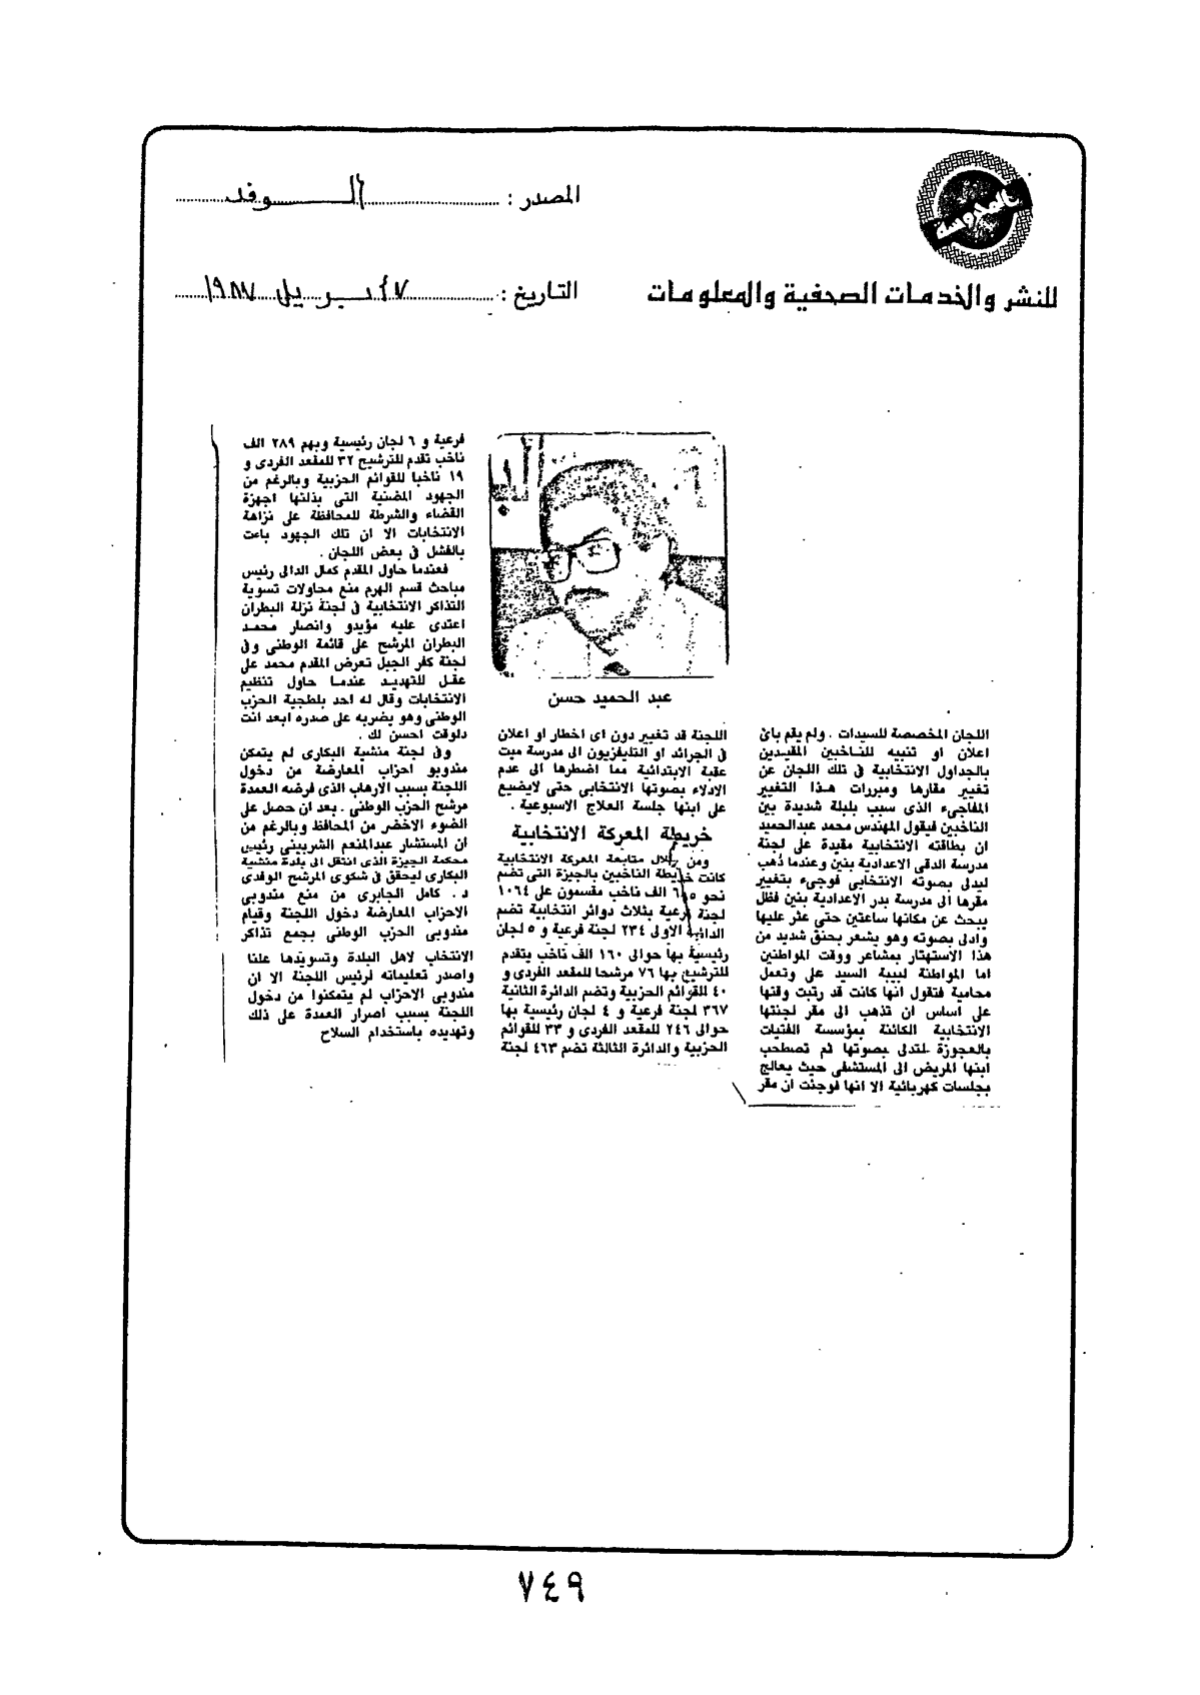 المصدر : الوفد
المدوسة
التاريخ : ابريل ١٩٨٧
للنشر والخدمات الصحفية والمعلومات
اللجان المخصصة للسيدات . ولم يقم بأى
اعلان او تنبيه للناخبين المقيدين
بالجداول الانتخابية فى تلك اللجان عن
تغيير مقارها ومبررات هذا التغيير
المفاجىء الذى سبب بلبلة شديدة بين
الناخبين فيقول المهندس محمد عبدالحميد
ان بطاقته الانتخابية مقيدة على لجنة
مدرسة الدقى الاعدادية بنين وعندما ذهب
ليدلى بصوته الانتخابى فوجىء بتغيير
مقرها الى مدرسة بدر الاعدادية بنين فظل
يبحث عن مكانها ساعتين حتى عثر عليها
وادلى بصوته وهو يشعر بحنق شديد من
هذا الاستهتار بمشاعر ووقت المواطنين
اما المواطنة لبيبة السيد على وتعمل
محامية فتقول انها كانت قد رتبت وقتها
على اساس ان تذهب الى مقر لجنتها
الانتخابية الكائنة بمؤسسة الفتيات
بالعجوزة لتدلى بصوتها ثم تصطحب
ابنها المريض الى المستشفى حيث يعالج
بجلسات كهربائية الا انها فوجئت ان مقر
عبد الحميد حسن
اللجنة قد تغيير دون اى اخطار او اعلان
فى الجرائد او التليفزيون الى مدرسة ميت
عقبة الابتدائية مما اضطرها الى عدم
الادلاء بصوتها الانتخابى حتى لايضيع
على ابنها جلسة العلاج الاسبوعية .
خريطة المعركة الانتخابية
ومن خلال متابعة المعركة الانتخابية
كانت خريطة الناخبين بالجيزة التى تضم
نحو الف ناخب مقسمون على ١٠٦٤
لجنة فرعية بثلاث دوائر انتخابية تضم
الدائرة الاولى ٢٣٤ لجنة فرعية و ٥ لجان
رئيسية بها حوالى ١٦٠ الف ناخب يتقدم
للترشيح بها ٧٦ مرشحا للمقعد الفردى و
٤٠ للقوائم الحزبية وتضم الدائرة الثانية
٣٦٧ لجنة فرعية و ٤ لجان رئيسية بها
حوالى ٢٤٦ للمقعد الفردى و ٣٣ للقوائم
الحزبية والدائرة الثالثة تضم ٤٦٣ لجنة
فرعية و ٦ لجان رئيسية وبهم ٢٨٩ الف
ناخب تقدم للترشيح ٣٢ للمقعد الفردى و
١٩ ناخبا للقوائم الحزبية وبالرغم من
الجهود المضنية التى بذلتها اجهزة
القضاء والشرطة للمحافظة على نزاهة
الانتخابات الا ان تلك الجهود باءت
بالفشل فى بعض اللجان .
فعندما حاول المقدم كمال الدالى رئيس
مباحث قسم الهرم منع محاولات تسوية
التذاكر الانتخابية فى لجنة نزلة البطران
اعتدى عليه مؤيدو وانصار محمد
البطران المرشح على قائمة الوطنى وفى
لجنة كفر الجبل تعرض المقدم محمد على
عقل للتهديد عندما حاول تنظيم
الانتخابات وقال له احد بلطجية الحزب
الوطنى وهو يضربه على صدره ابعد انت
دلوقت احسن لك .
وفى لجنة منشية البكارى لم يتمكن
مندوبو احزاب المعارضة من دخول
اللجنة بسبب الارهاب الذى فرضه العمدة
مرشح الحزب الوطنى . بعد ان حصل على
الضوء الاخضر من المحافظ وبالرغم من
ان المستشار عبدالمنعم الشربينى رئيس
محكمة الجيزة الذى انتقل الى بلدة منشية
البكارى ليحقق فى شكوى المرشح الوفدى
د . كامل الجابرى من منع مندوبى
الاحزاب المعارضة دخول اللجنة وقيام
مندوبى الحزب الوطنى بجمع تذاكر
الانتخاب لاهل البلدة وتسويدها علنا
واصدر تعليماته لرئيس اللجنة الا ان
مندوبى الاحزاب لم يتمكنوا من دخول
اللجنة بسبب اصرار العمدة على ذلك
وتهديده باستخدام السلاح
٧٤٩